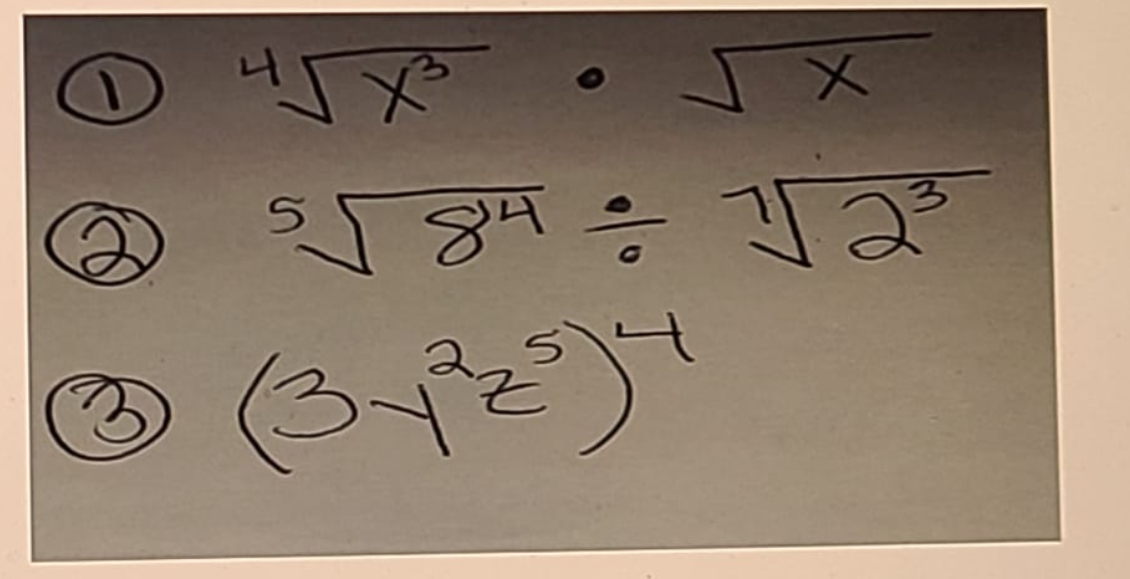 ① ∜x³ • √x
② ⁵√8⁴ ÷ ⁷√2³
③ (3y²z⁵)⁴